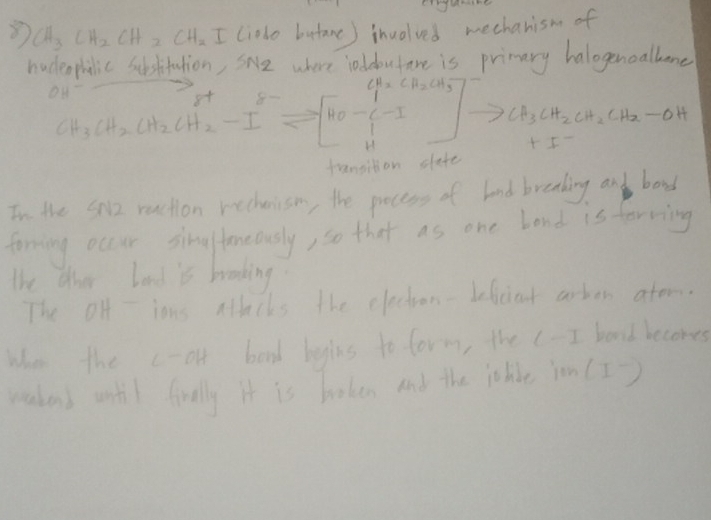 8) CH3 CH2 CH2 CH2 I (iodo butane) involved mechanism of
nucleophilic substitution, SN2 where iodobutane is primary halogenoalkane
OH⁻
δ+ δ-
CH2 CH2CH3 ⁻
CH3CH2CH2CH2-I ⇌ [HO-C-I] → CH3CH2CH2CH2-OH
H + I⁻
transition state
In the SN2 reaction mechanism, the process of bond breaking and bond
forming occur simultaneously, so that as one bond is forming
the other bond is breaking.
The OH⁻ ions attacks the electron-deficient carbon atom.
When the C-OH bond begins to form, the C-I bond becomes
weakend until finally it is broken and the iodide ion (I⁻)